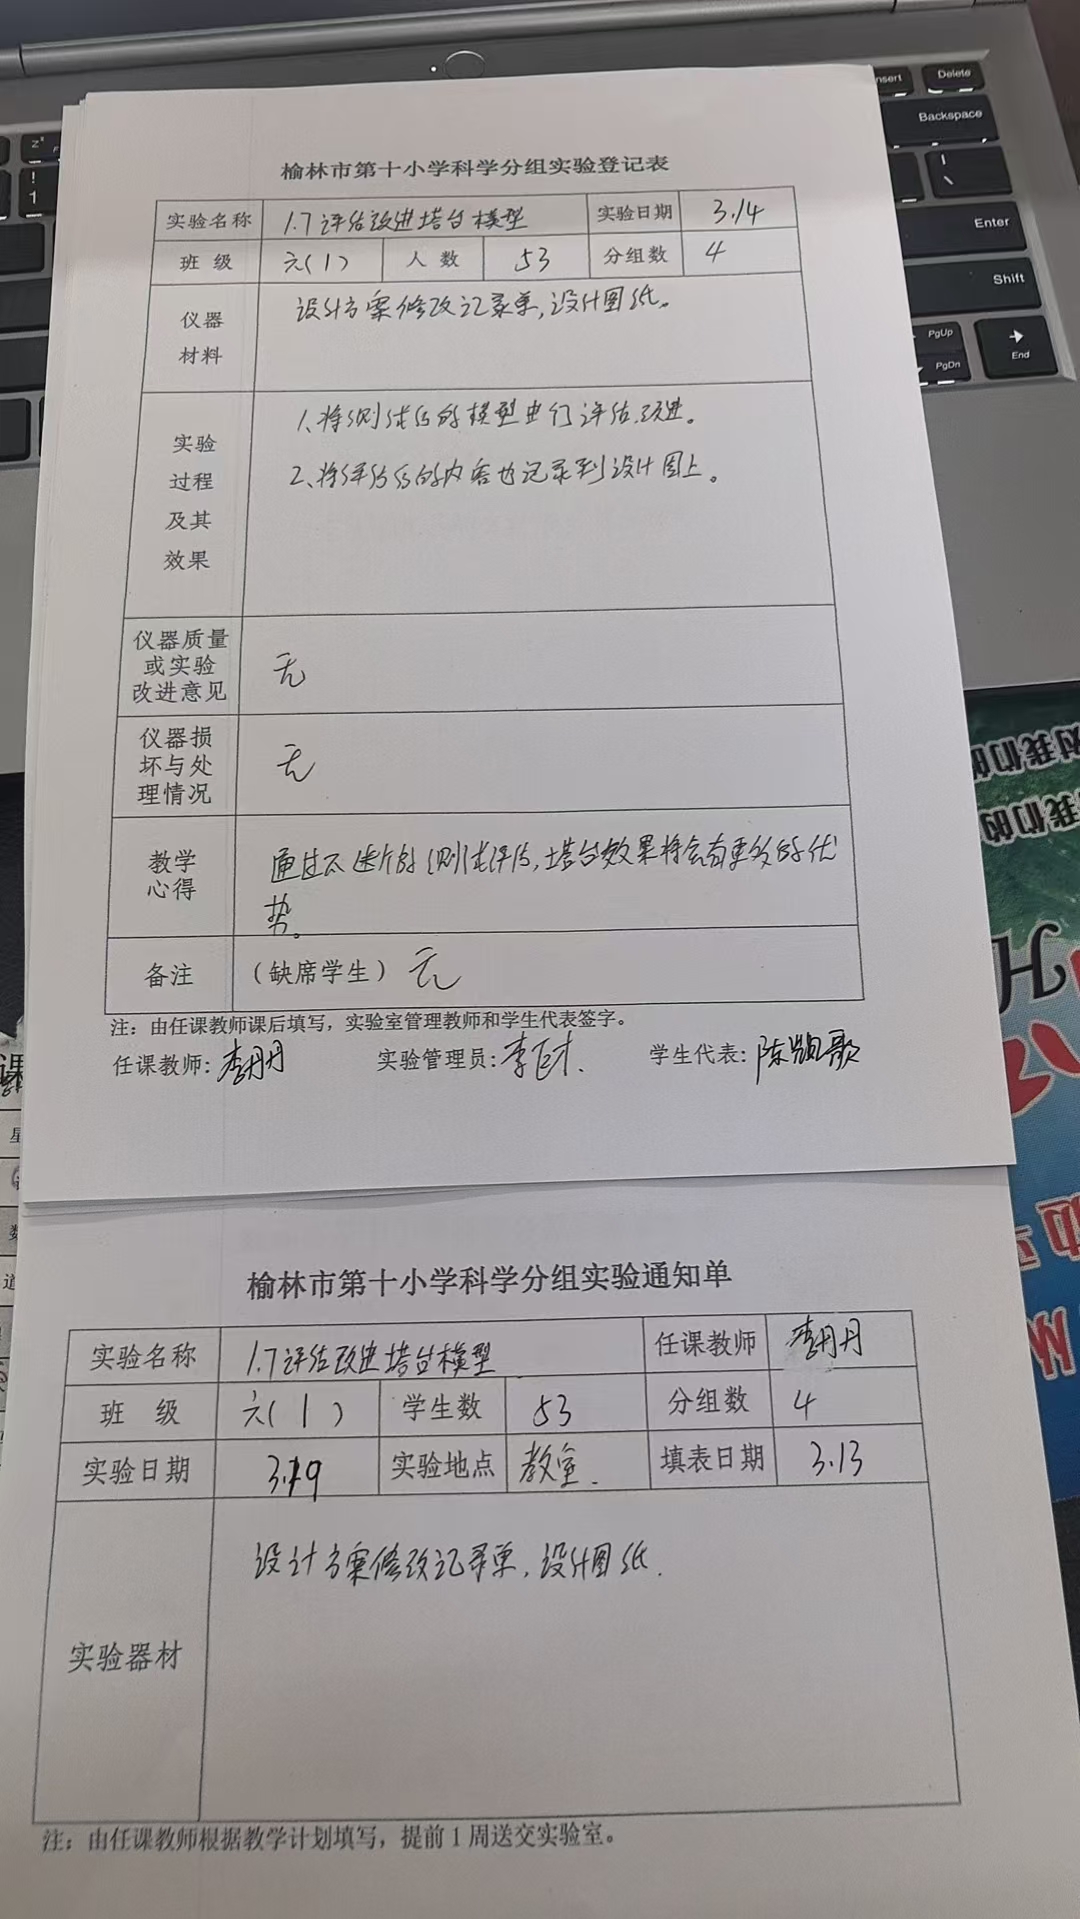 Insert
Delete
Backspace
Enter
Shift
PgUp
PgDn
End
榆林市第十小学科学分组实验登记表
实验名称 1.7评估改进塔台模型 实验日期 3.14
班 级 六(1) 人 数 53 分组数 4
仪器
材料
设计方案修改记录单,设计图纸。
实验
过程
及其
效果
1、将测试后的模型进行评估,改进。
2、将评估后的内容也记录到设计图上。
仪器质量
或实验
改进意见
无
仪器损
坏与处
理情况
无
教学
心得
通过不断的测试评估,塔台效果将会有更多的优
势。
备注 (缺席学生) 无
注:由任课教师课后填写,实验室管理教师和学生代表签字。
任课教师:李丹丹 实验管理员: 学生代表:
榆林市第十小学科学分组实验通知单
实验名称 1.7评估改进塔台模型 任课教师 李丹丹
班 级 六(1) 学生数 53 分组数 4
实验日期 实验地点 教室. 填表日期 3.13
实验器材
设计方案修改记录单,设计图纸.
注:由任课教师根据教学计划填写,提前1周送交实验室。